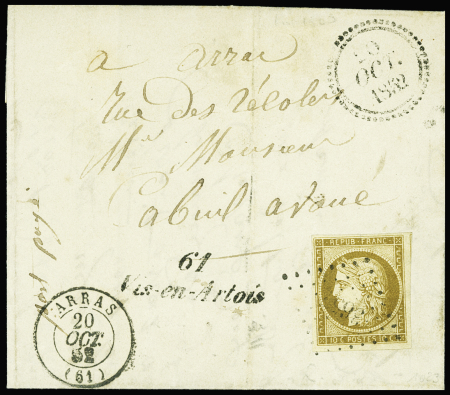 à arras
rue des Récolets
Monsieur
avoué
port payé
OCT.
1852
61
Vis-en-Artois
ARRAS
20
OCT.
52
(61)
REPUB. FRANC.
10 C POSTES 10 C